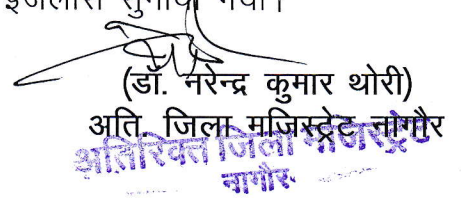 इजलास सुनाया गया।
(डॉ. नरेन्द्र कुमार थोरी)
अति. जिला मजिस्ट्रेट नागौर
अतिरिक्त जिला मजिस्ट्रेट
नागौर